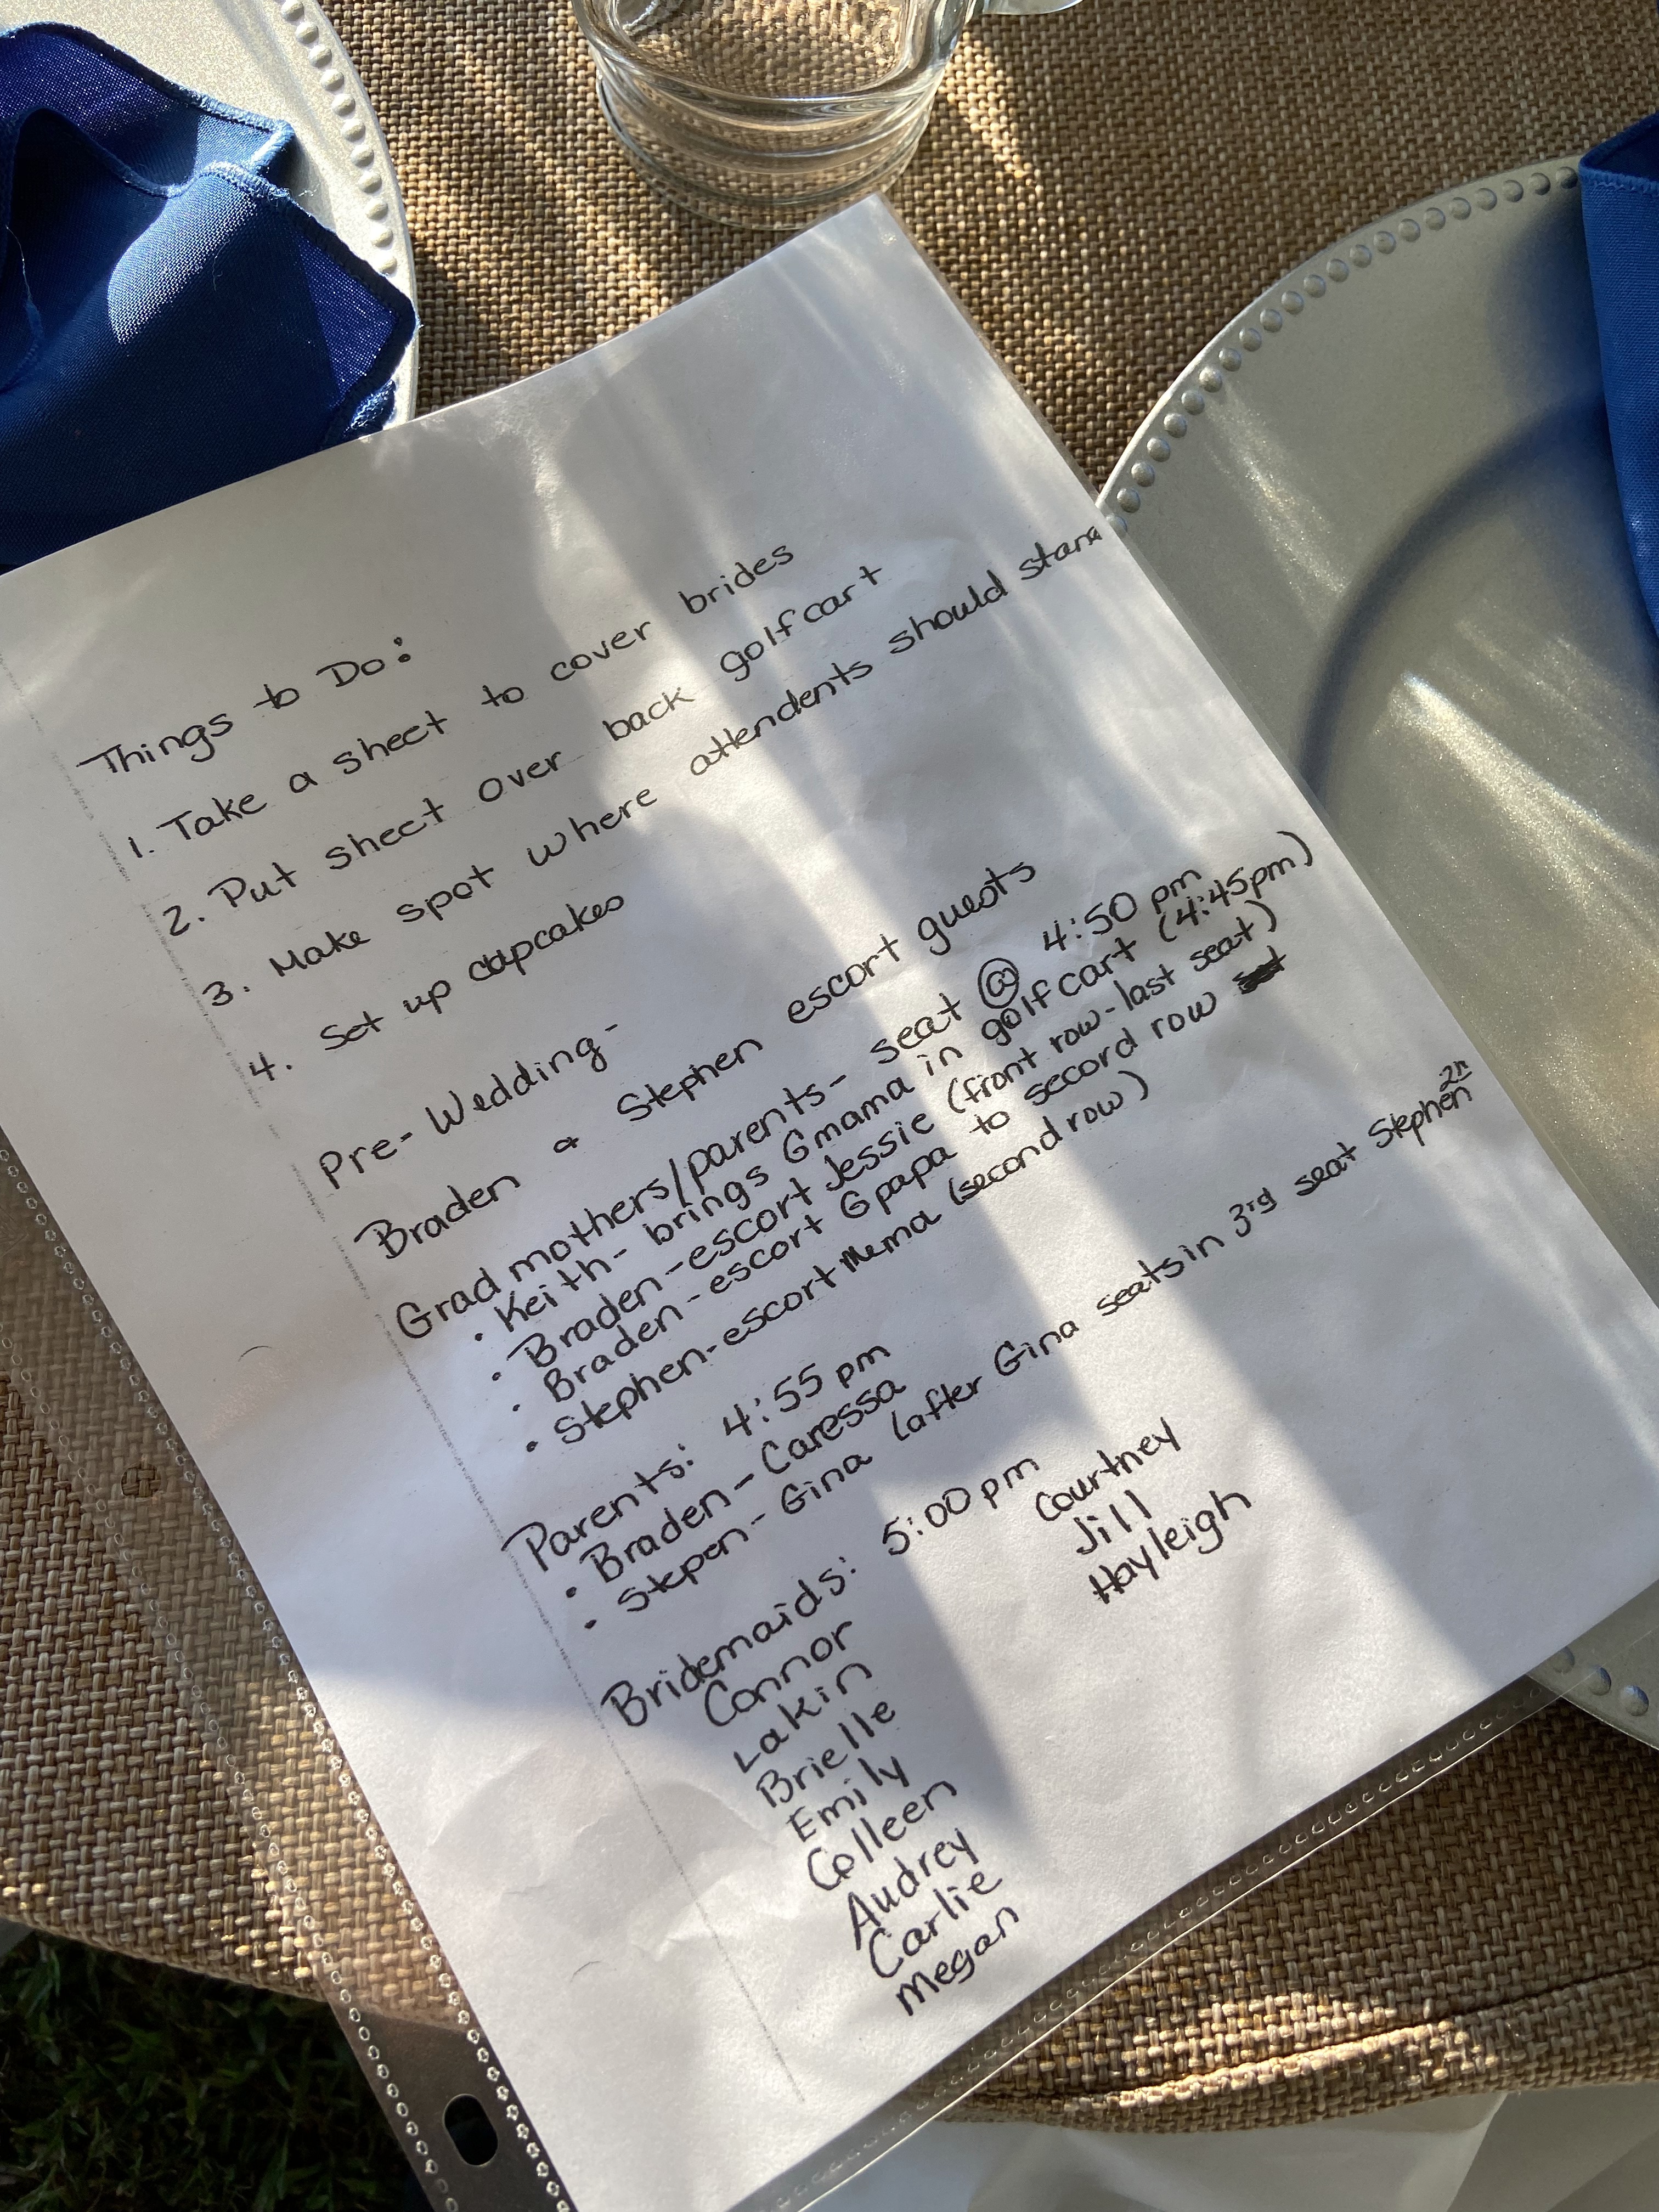 Things to Do:
1. Take a sheet to cover brides
2. Put sheet over back golfcart
3. Make spot where attendents should stand
4. Set up cupcakes
Pre-Wedding-
Braden & Stephen escort guests
Grad mothers/parents- seat @ 4:50 pm
• Keith- brings Gmama in golfcart (4:45pm)
• Braden-escort Jessie (front row-last seat)
• Braden-escort Gpapa to second row
• Stephen-escort Mema (second row)
Parents: 4:55 pm
• Braden- Caressa
• Stepen- Gina (after Gina seats in 3rd seat Stephen
Bridemaids: 5:00 pm
Connor Courtney
Lakin Jill
Brielle Hayleigh
Emily
Colleen
Audrey
Carlie
Megan